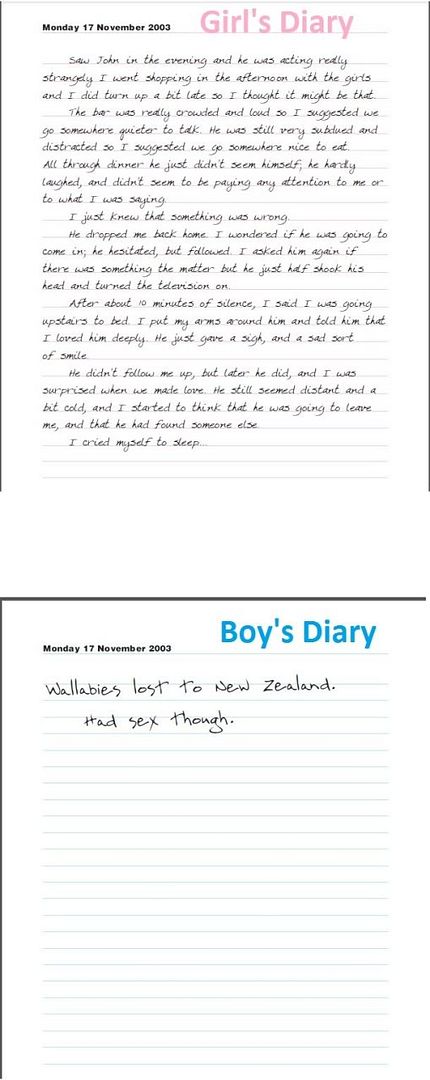 Girl's Diary
Monday 17 November 2003
Saw John in the evening and he was acting really
strangely. I went shopping in the afternoon with the girls
and I did turn up a bit late so I thought it might be that.
The bar was really crowded and loud so I suggested we
go somewhere quieter to talk. He was still very subdued and
distracted so I suggested we go somewhere nice to eat.
All through dinner he just didn't seem himself; he hardly
laughed, and didn't seem to be paying any attention to me or
to what I was saying.
I just knew that something was wrong.
He dropped me back home. I wondered if he was going to
come in; he hesitated, but followed. I asked him again if
there was something the matter but he just half shook his
head and turned the television on.
After about 10 minutes of silence, I said I was going
upstairs to bed. I put my arms around him and told him that
I loved him deeply. He just gave a sigh, and a sad sort
of smile.
He didn't follow me up, but later he did, and I was
surprised when we made love. He still seemed distant and a
bit cold, and I started to think that he was going to leave
me, and that he had found someone else.
I cried myself to sleep...
Boy's Diary
Monday 17 November 2003
Wallabies lost to New Zealand.
Had sex though.